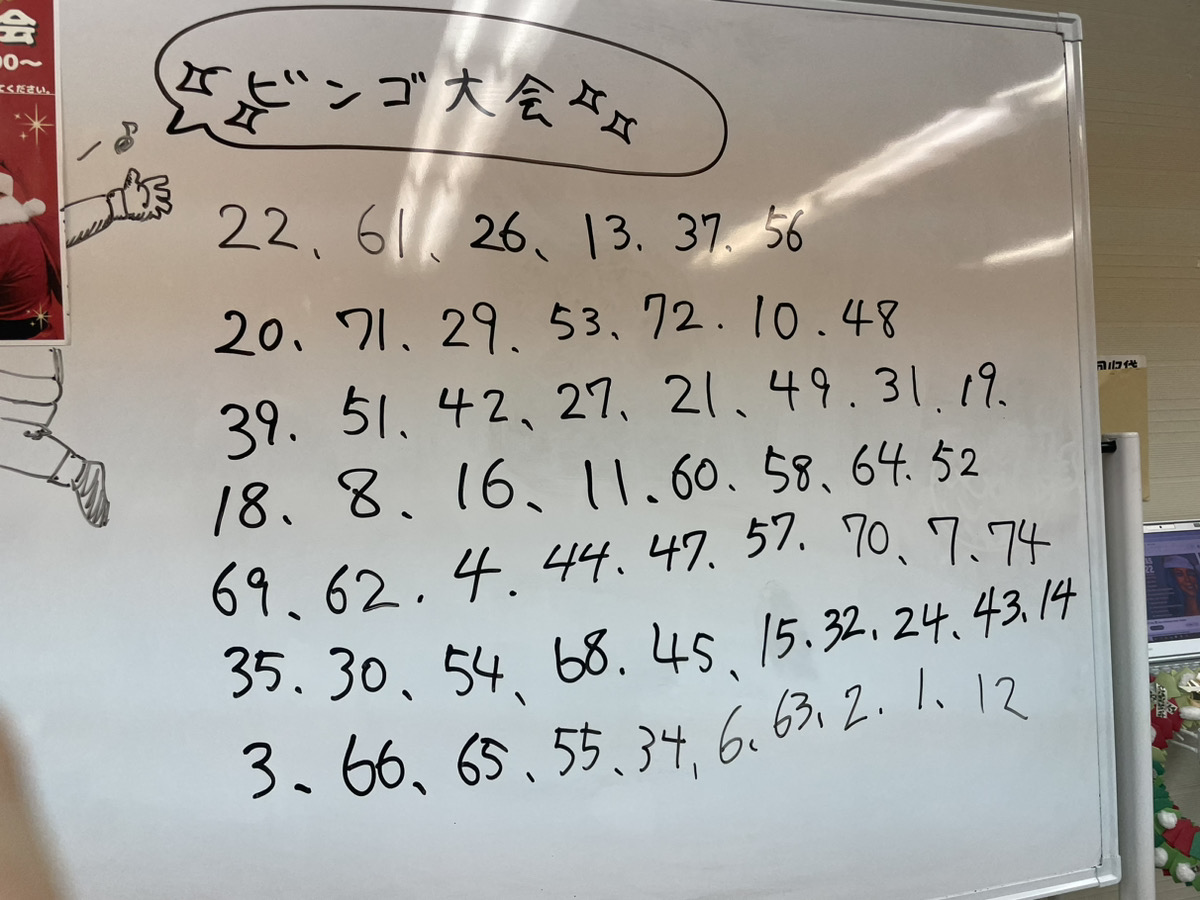 会
00〜
てください。
ビンゴ大会
22、61、26、13.37.56
20、71.29.53、72.10.48
39.51、42、27、21、49.31.19.
18、8、16、11.60.58、64.52
69、62.4.44.47.57.70、7.74
35、30、54、68.45、15.32.24、43.14
3、66、65、55、34、6、63、2.1、12
回収袋